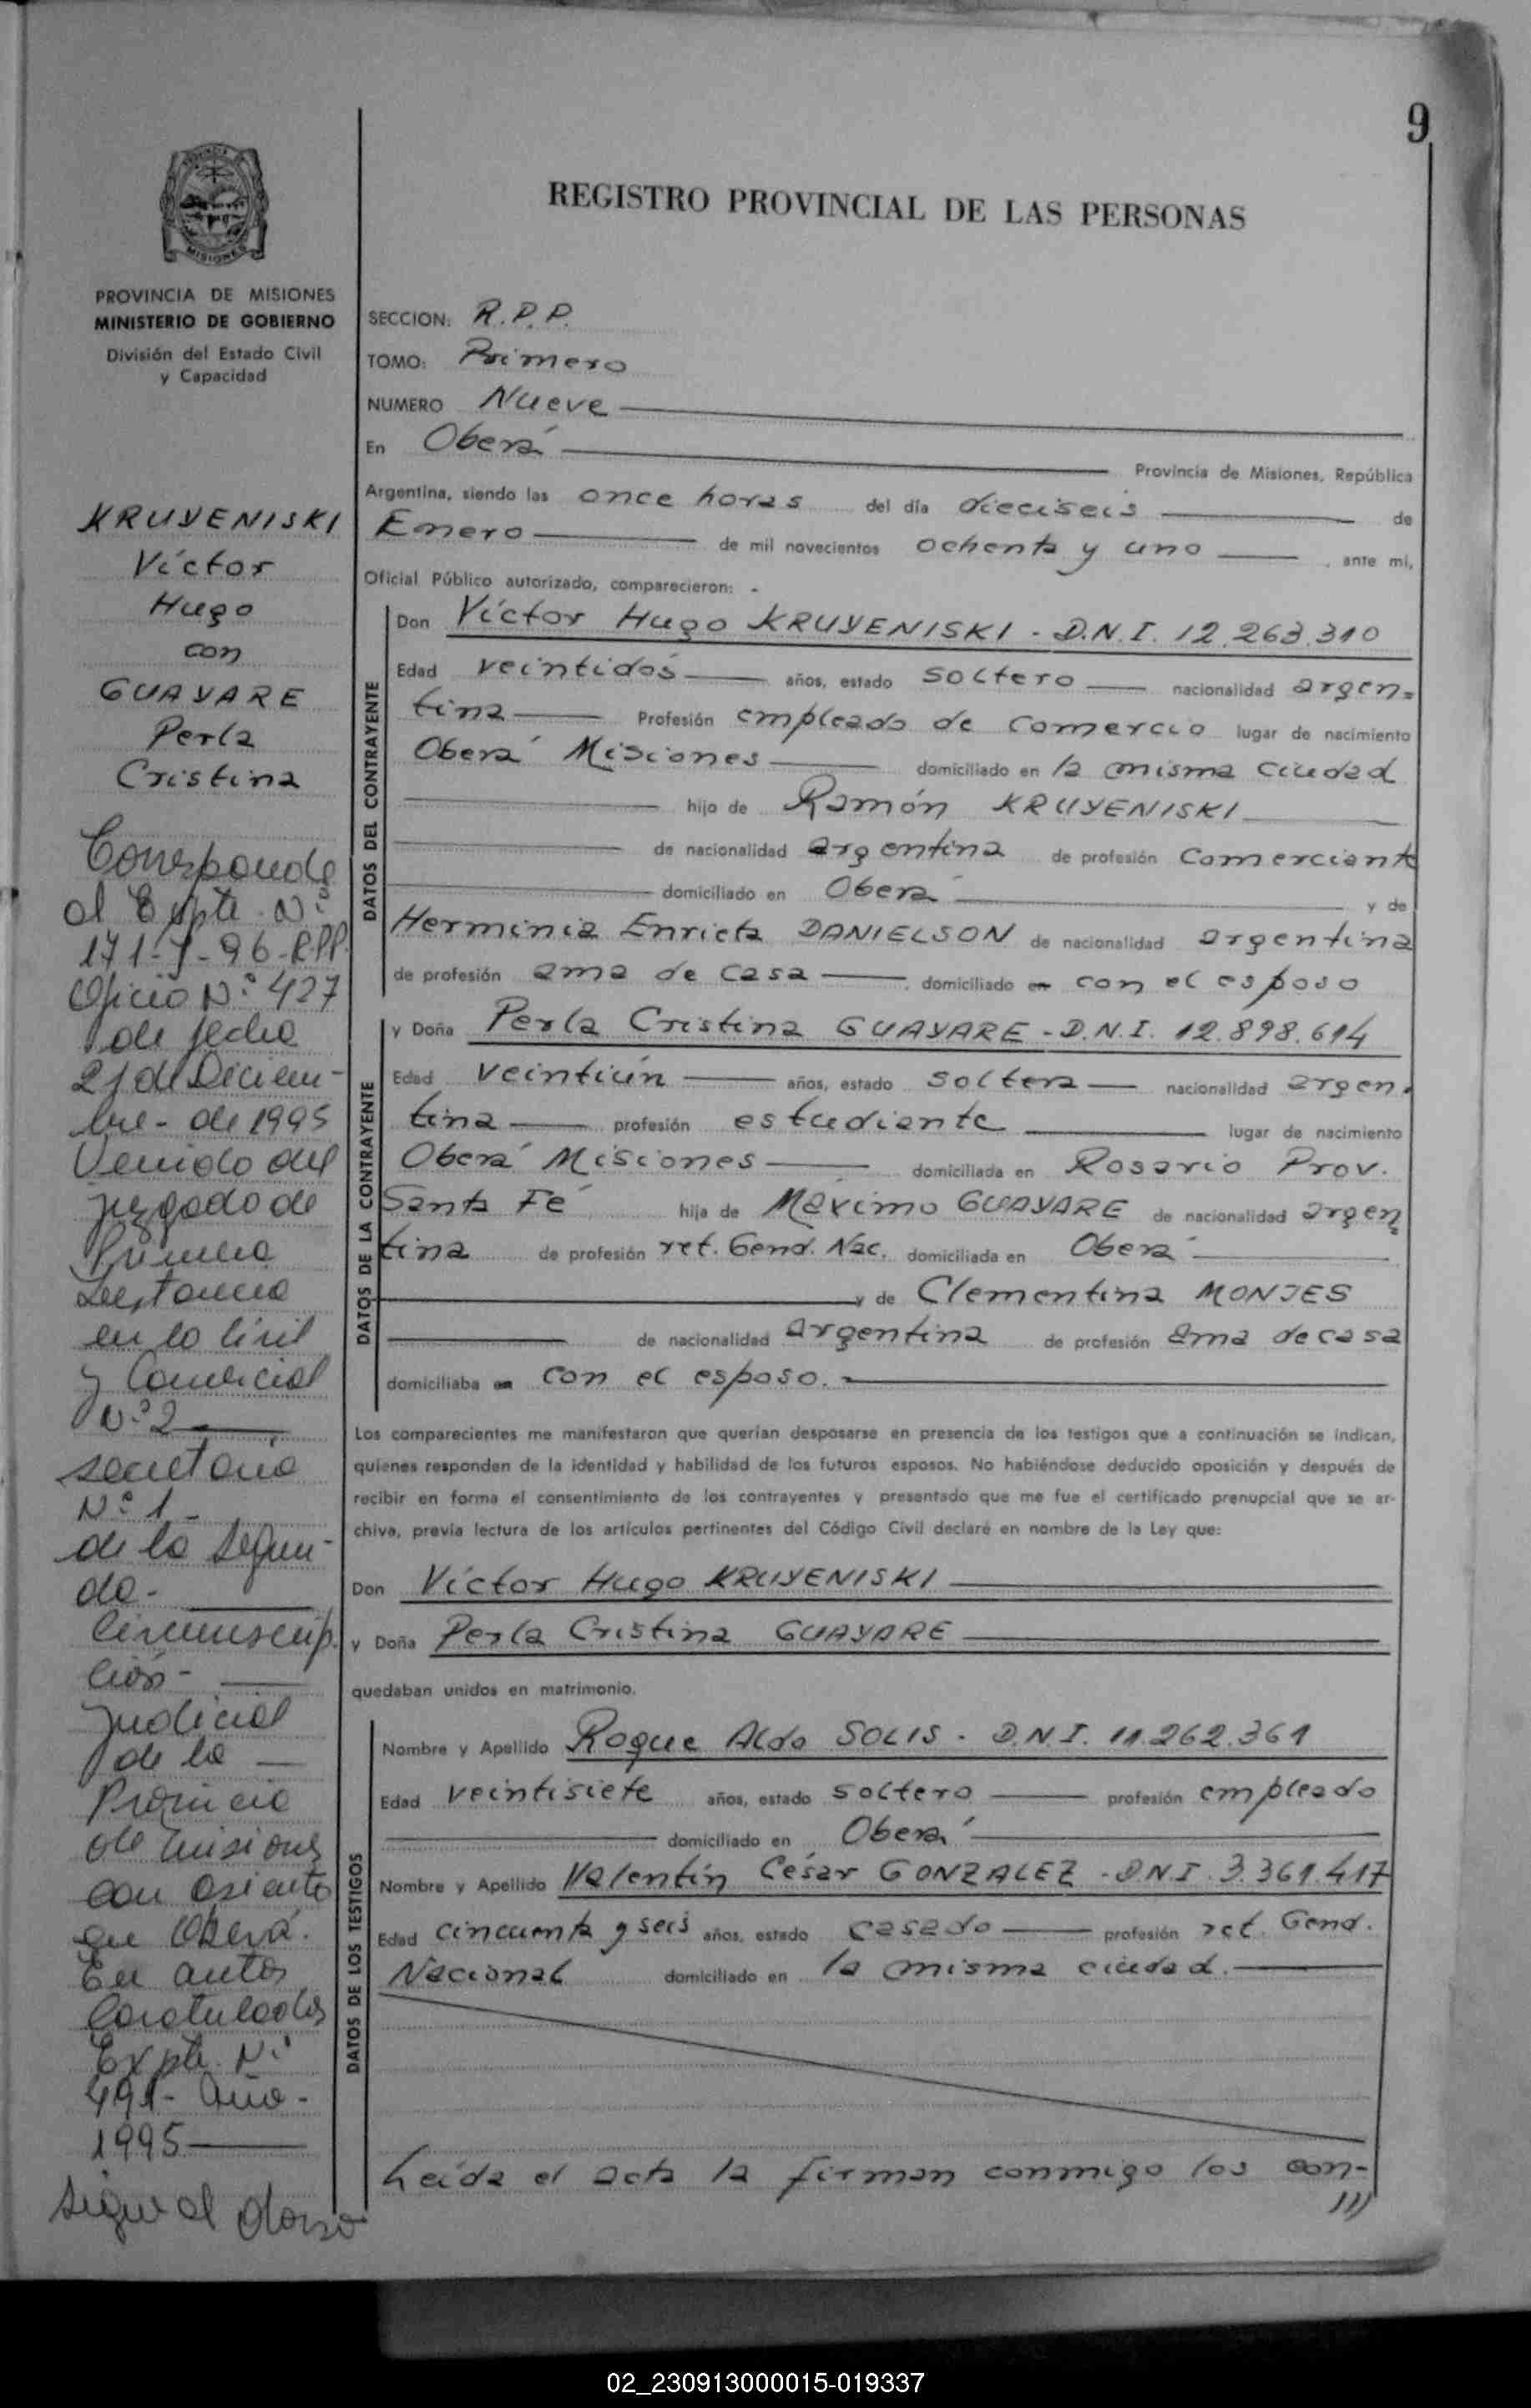 9
REGISTRO PROVINCIAL DE LAS PERSONAS
PROVINCIA DE MISIONES
MINISTERIO DE GOBIERNO
División del Estado Civil
y Capacidad
KRUYENISKI
Víctor
Hugo
con
GUAYARE
Perla
Cristina
Corresponde
al Expte. Nº
171-J-96-RPP.
Oficio Nº 427
de fecha
21 de Diciem-
bre - de 1995
Venido del
juzgado de
Primera
Instancia
en lo Civil
y Comercial
Nº 2
secretaria
Nº 1 -
de la Segun-
da -
Circunscrip-
ción -
judicial
de la
Provincia
de Misiones
con asiento
en Oberá.
En autos
Caratulados
Expte. Nº
491 - Año -
1995
sigue al dorso
SECCION: R.P.P.
TOMO: Primero
NUMERO Nueve
En Oberá Provincia de Misiones, República
Argentina, siendo las once horas del día dieciseis de
Enero de mil novecientos ochenta y uno, ante mí,
Oficial Público autorizado, comparecieron: -
DATOS DEL CONTRAYENTE
Don Víctor Hugo KRUYENISKI - D.N.I. 12.263.310
Edad veintidós años, estado soltero nacionalidad argen-
tina Profesión empleado de comercio lugar de nacimiento
Oberá Misiones domiciliado en la misma ciudad
hijo de Ramón KRUYENISKI
de nacionalidad argentina de profesión comerciante
domiciliado en Oberá y de
Herminia Enricta DANIELSON de nacionalidad argentina
de profesión ama de casa, domiciliado en con el esposo
DATOS DE LA CONTRAYENTE
y Doña Perla Cristina GUAYARE - D.N.I. 12.898.614
Edad veintiún años, estado soltera nacionalidad argen-
tina profesión estudiante lugar de nacimiento
Oberá Misiones domiciliada en Rosario Prov.
Santa Fé hija de Máximo GUAYARE de nacionalidad argen
tina de profesión ret. Gend. Nac. domiciliada en Oberá
y de Clementina MONJES
de nacionalidad argentina de profesión ama de casa
domiciliaba en con el esposo.-
Los comparecientes me manifestaron que querían desposarse en presencia de los testigos que a continuación se indican,
quienes responden de la identidad y habilidad de los futuros esposos. No habiéndose deducido oposición y después de
recibir en forma el consentimiento de los contrayentes y presentado que me fue el certificado prenupcial que se ar-
chiva, previa lectura de los artículos pertinentes del Código Civil declaré en nombre de la Ley que:
Don Víctor Hugo KRUYENISKI
y Doña Perla Cristina GUAYARE
quedaban unidos en matrimonio.
DATOS DE LOS TESTIGOS
Nombre y Apellido Roque Aldo SOLIS - D.N.I. 11.262.361
Edad veintisiete años, estado soltero profesión empleado
domiciliado en Oberá
Nombre y Apellido Valentín César GONZALEZ - D.N.I. 3.361.417
Edad cincuenta y seis años, estado casado profesión ret. Gend.
Nacional domiciliado en la misma ciudad.
Leída el acta la firman conmigo los con-
///
02_230913000015-019337